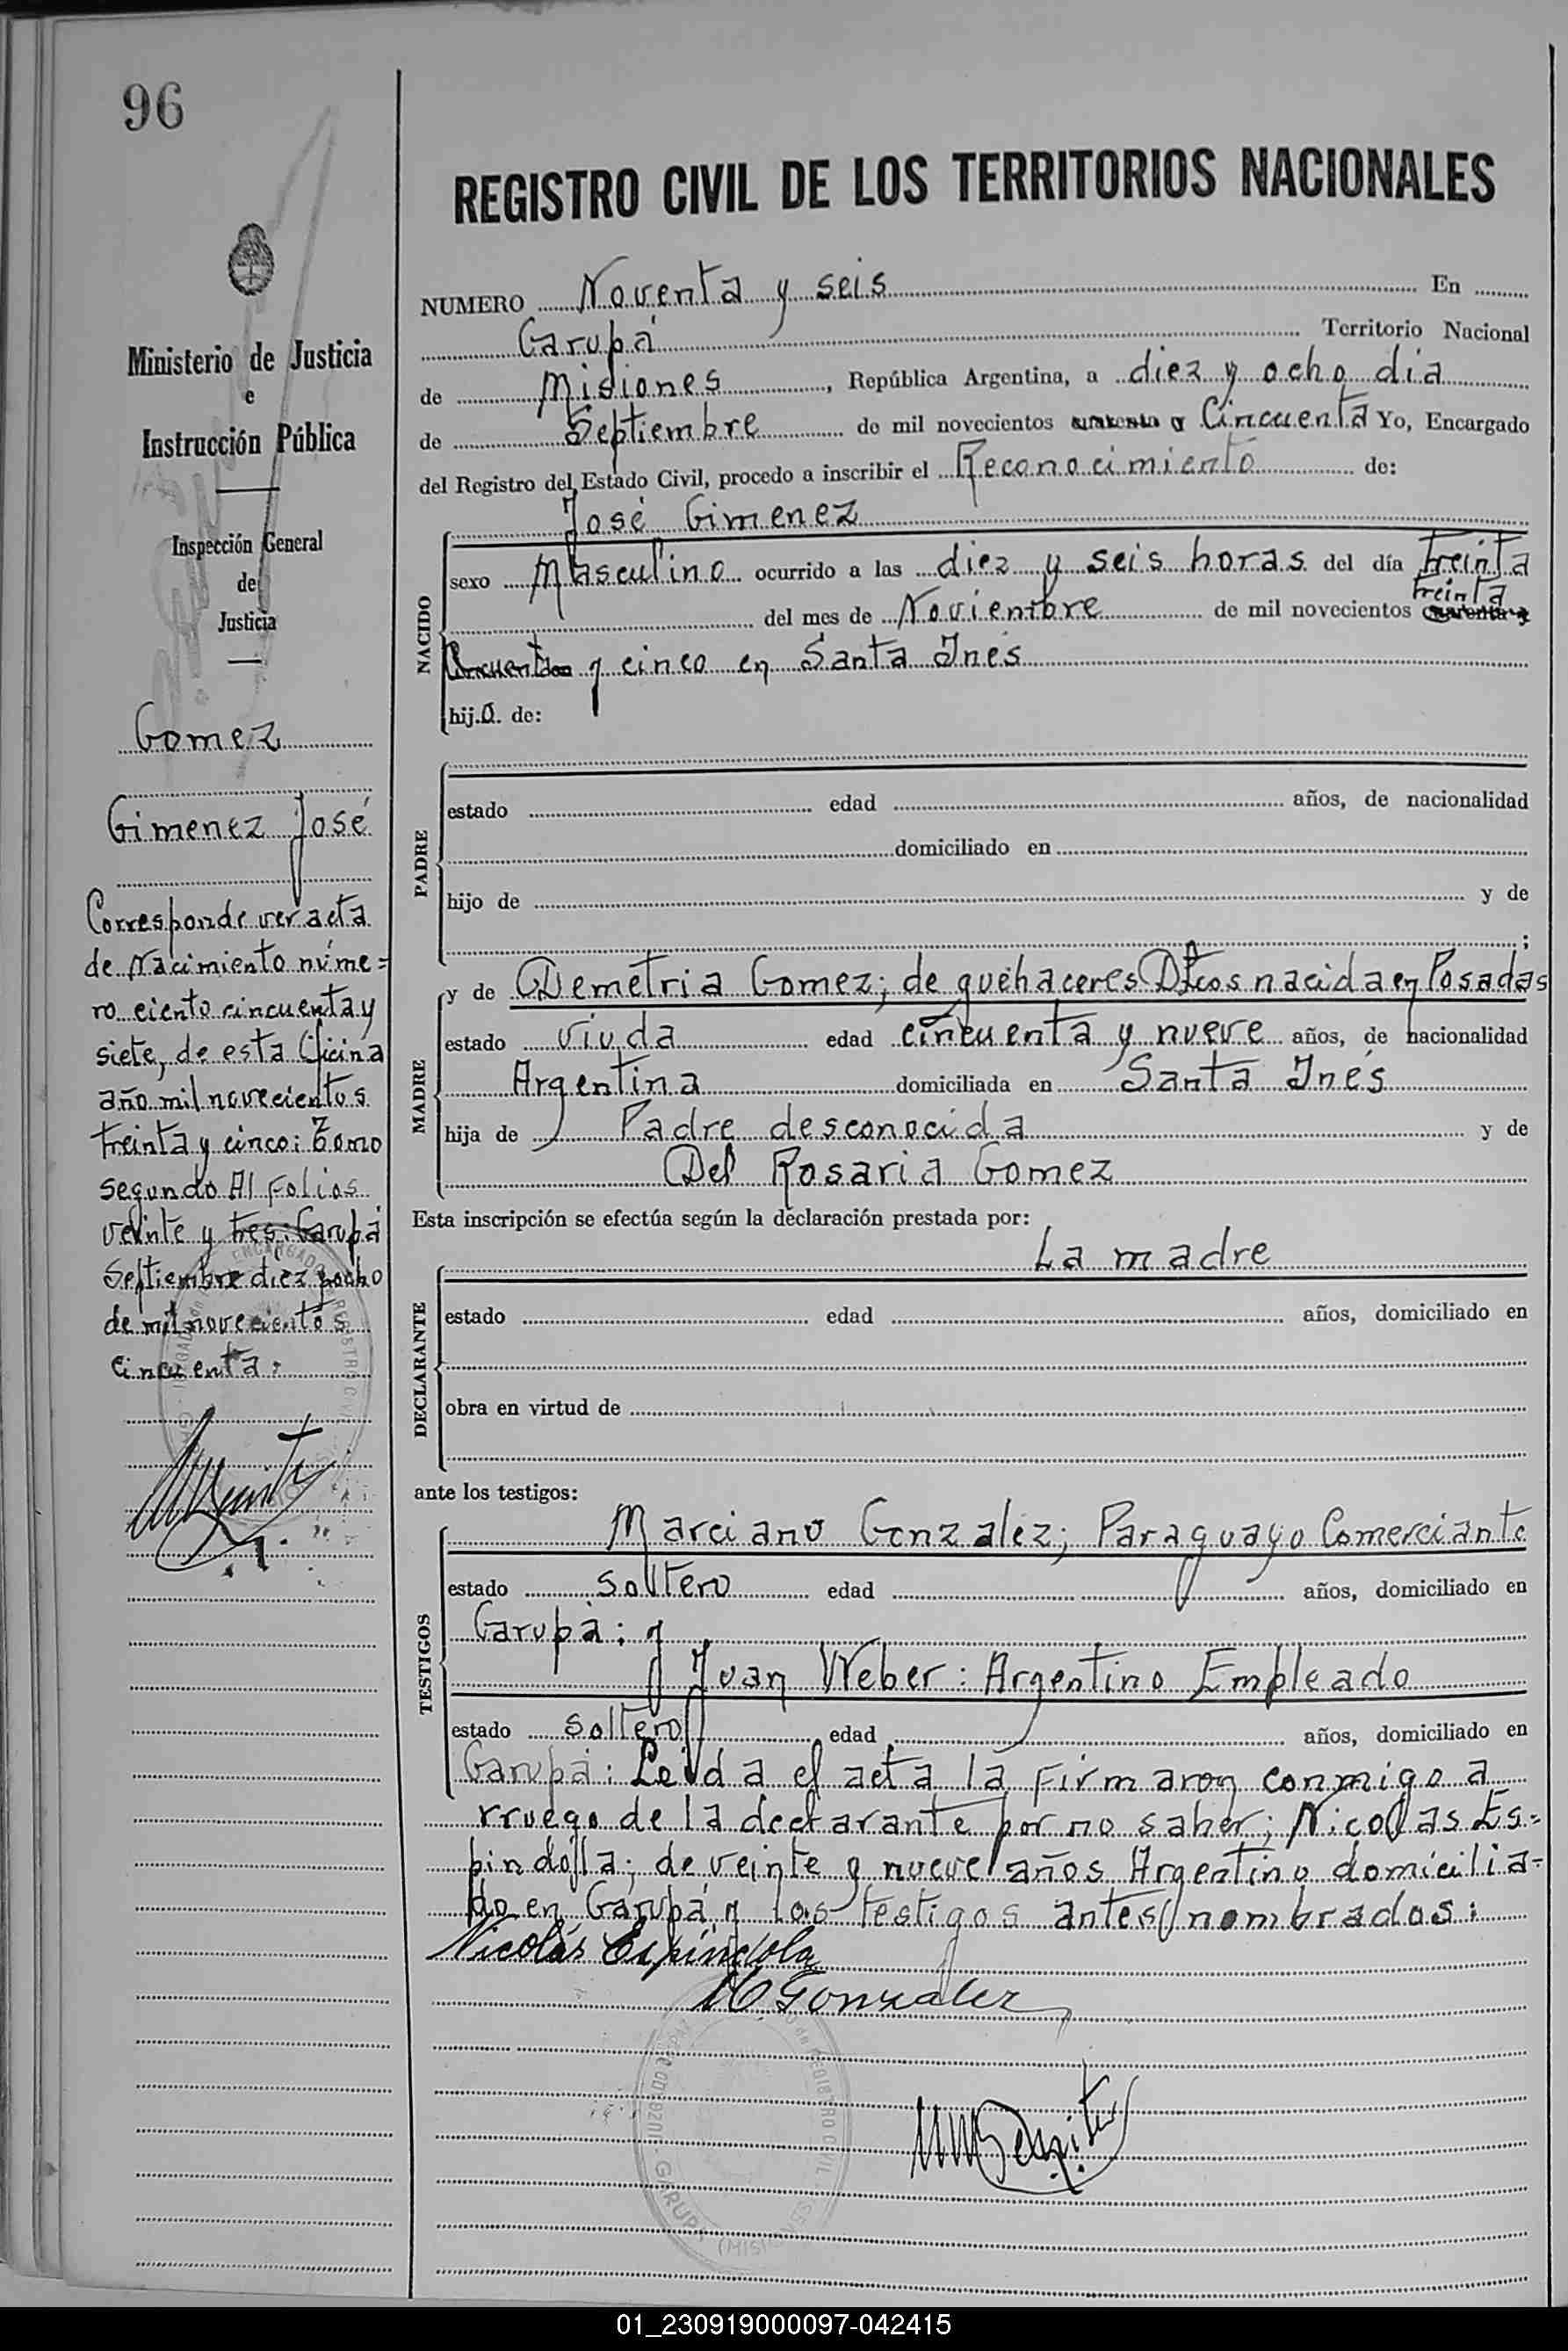 96
REGISTRO CIVIL DE LOS TERRITORIOS NACIONALES
Ministerio de Justicia
e
Instrucción Pública
Inspección General
de
Justicia
Gomez
Gimenez José
Corresponde ver acta
de nacimiento núme=
ro ciento cincuenta y
siete, de esta Oficina
año mil novecientos
treinta y cinco: Tomo
segundo Al Folios
veinte y tres: Garupá
Septiembre diez y ocho
de mil novecientos
cincuenta:
NUMERO Noventa y seis En
Garupá Territorio Nacional
de Misiones, República Argentina, a diez y ocho dia
de Septiembre de mil novecientos cuarenta y Cincuenta Yo, Encargado
del Registro del Estado Civil, procedo a inscribir el Reconocimiento de:
José Gimenez
NACIDO
sexo Masculino ocurrido a las diez y seis horas del día treinta
del mes de Noviembre de mil novecientos cuarenta y treinta
y cinco en Santa Inés
hijo de:
PADRE
estado edad años, de nacionalidad
domiciliado en
hijo de y de
;
MADRE
y de Demetria Gomez; de quehaceres Dtcos nacida en Posadas
estado viuda edad cincuenta y nueve años, de nacionalidad
Argentina domiciliada en Santa Inés
hija de Padre desconocida y de
Del Rosaria Gomez
Esta inscripción se efectúa según la declaración prestada por:
La madre
DECLARANTE
estado edad años, domiciliado en
obra en virtud de
ante los testigos:
TESTIGOS
Marciano Gonzalez; Paraguayo Comerciante
estado soltero edad años, domiciliado en
Garupá: y
Juan Weber: Argentino Empleado
estado soltero edad años, domiciliado en
Garupá: Leida el acta la firmaron conmigo a
rruego de la declarante por no saber; Nicolas Es=
pindola; de veinte y nueve años Argentino domicilia=
do en Garupá y los testigos antes nombrados:
Nicolás Espíndola
M Gonzalez
01_230919000097-042415